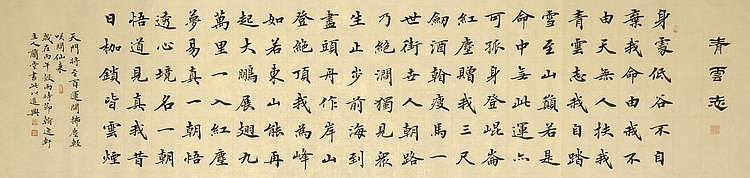 青雲志
身處低谷不自
棄我命由我不
由天無人扶我
青雲志我自踏
雪至山巔若是
命中無此運亦
可孤身登崐崙
紅塵贈我三尺
劍酒翰瘦馬一
世街吾人朝路
乃絕澗獨見眾
生止步前海到
盡頭舟作岸山
登絕頂我為峰
如若東山能再
起大鵬展翅九
萬里一入紅塵
夢易真一朝悟
透心境名一朝
悟道見真我昔
日枷鎖皆雲煙
天門將至百運開拂塵輕
咲問仙來
歲在丙午穀雨時節翰逸軒
主人蘭堂書此以遣興